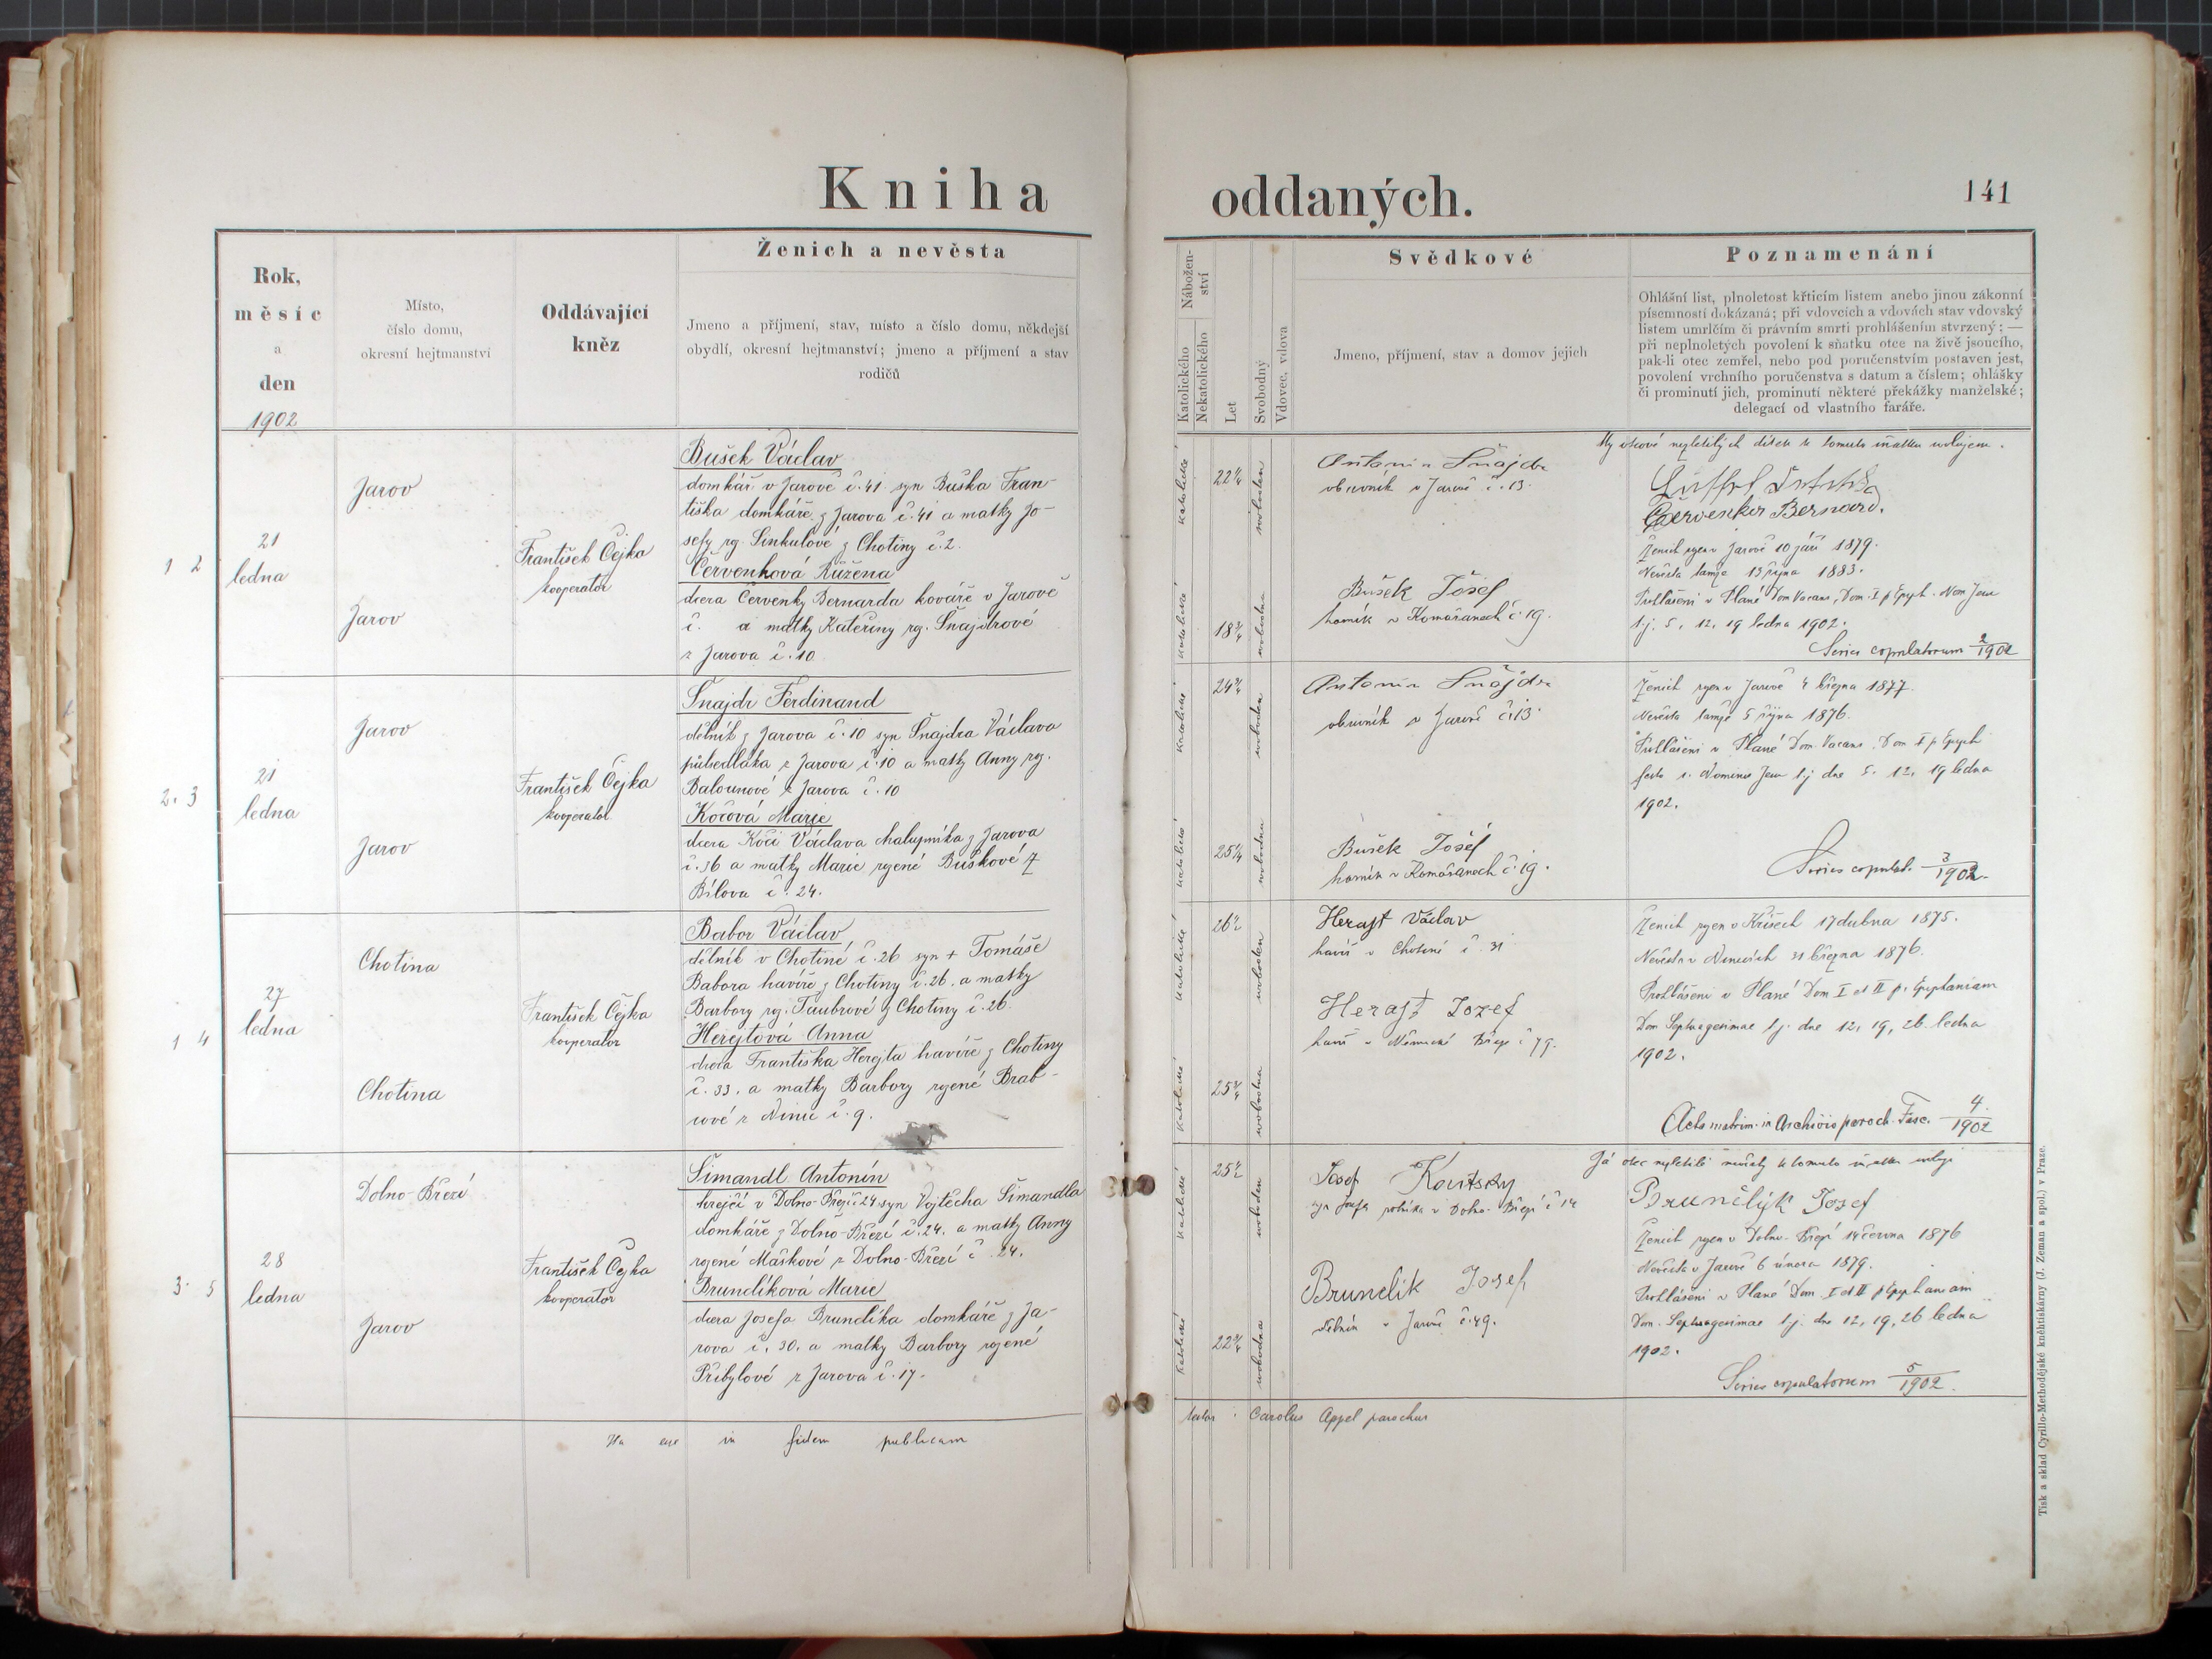 Kniha oddaných.
141
Rok,
měsíc
a
den
1902
Místo,
číslo domu,
okresní hejtmanství
Oddávající
kněz
Ženich a nevěsta
Jmeno a příjmení, stav, místo a číslo domu, někdejší
obydlí, okresní hejtmanství; jmeno a příjmení a stav
rodičů
Nábožen-
ství
Katolického
Nekatolického
Let
Svobodný
Vdovec, vdova
Svědkové
Jmeno, příjmení, stav a domov jejich
Poznamenání
Ohlášní list, plnoletost křticím listem anebo jinou zákonní
písemností dokázaná; při vdovcích a vdovách stav vdovský
listem umrlčím či právním smrti prohlášením stvrzený; —
při neplnoletých povolení k sňatku otce na živě jsoucího,
pak-li otec zemřel, nebo pod poručenstvím postaven jest,
povolení vrchního poručenstva s datum a číslem; ohlášky
či prominutí jich, prominutí některé překážky manželské;
delegací od vlastního faráře.
1 2
21
ledna
Jarov
Jarov
František Čejka
kooperator
Bušek Václav
domkář v Jarově č. 41 syn Buška Fran-
tiška domkáře z Jarova č. 41 a matky Jo-
sefy rz. Sinkulové z Chotiny č. 2.
Červenková Růžena
dcera Červenky Bernarda kováře v Jarově
č. a matky Kateřiny rz. Šnajdrové
z Jarova č. 10
katolické
22¼
svoboden
katolické
18¾
svobodna
Antonín Šnajdr
obuvník v Jarově č. 13.
Bušek Josef
horník v Komářanech č. 19.
My otcové nezletilých dítek k tomuto sňatku svolujem.
Červenka Bernard.
Ženich rozen v Jarově 10 září 1879.
Nevěsta tamže 13 října 1883.
Prohlášeni v Plané Dom Vacans, Dom. I p Epiph. Nom Jesu
t.j. 5, 12, 19 ledna 1902.
Series copulatorum 2/1902
2. 3
21
ledna
Jarov
Jarov
František Čejka
kooperator
Šnajdr Ferdinand
dělník z Jarova č. 10 syn Šnajdra Václava
půlsedláka z Jarova č. 10 a matky Anny rz.
Balounové z Jarova č. 10
Kočová Marie
dcera Kočí Václava chalupníka z Jarova
č. 36 a matky Marie rozené Buškové z
Bílova č. 24.
katolické
24¾
svoboden
katolické
25¼
svobodna
Antonín Šnajdr
obuvník v Jarově č. 13.
Bušek Josef
horník v Komářanech č. 19.
Ženich rozen v Jarově 4 března 1877.
Nevěsta tamže 5 října 1876.
Prohlášeni v Plané Dom. Vacans. Dom I p Epiph
festo s. Nominis Jesu t.j dne 5. 12. 19 ledna
1902.
Series copulat. 3/1902.
1 4
27
ledna
Chotina
Chotina
František Čejka
kooperator
Babor Václav
dělník v Chotině č. 26 syn + Tomáše
Babora havíře z Chotiny č. 26. a matky
Barbory rz. Taubrové z Chotiny č. 26.
Herejtová Anna
dcera Františka Herejta havíře z Chotiny
č. 33. a matky Barbory rozené Brab-
cové z Ninic č. 9.
katolické
svoboden
katolické
25¾
svobodna
Herajt Václav
havíř v Chotině č. 31
Herajt Jozef
havíř v Německé Bříze č 79.
Ženich rozen v Kříších 17 dubna 1875.
Nevěsta v Ninicích 31 března 1876.
Prohlášeni v Plané Dom I et II p. Epiphaniam
Dom Septuagesimae t.j. dne 12, 19, 26. ledna
1902.
Acta matrim. in Archivio paroch. Fasc. 4/1902
3. 5
28
ledna
Dolno-Březí
Jarov
František Čejka
kooperator
Šimandl Antonín
krejčí v Dolno-Březí č. 24 syn Vojtěcha Šimandla
domkáře z Dolno-Březí č. 24. a matky Anny
rozené Maškové z Dolno-Březí č. 24.
Brunclíková Marie
dcera Josefa Brunclíka domkáře z Ja-
rova č. 30. a matky Barbory rozené
Přibylové z Jarova č. 17.
katolické
25½
svoboden
katolické
22¾
svobodna
Josef Koutský
syn Josefa rolníka v Dolno-Březí č 14
Brunclík Josef
dělník v Jarově č. 49.
Já otec nezletilé nevěsty k tomuto sňatku svoluji
Brunclík Josef
Ženich rozen v Dolno-Březí 14 června 1876
Nevěsta v Jarově 6 února 1879.
Prohlášeni v Plané Dom. I et II p Epiphaniam
Dom. Septuagesimae t.j. dne 12, 19, 26 ledna
1902.
Series copulatorum 5/1902.
Ita esse in fidem publicam testor: Carolus Appel parochus
Tisk a sklad Cyrillo-Methodějské knihtiskárny (J. Zeman a spol.) v Praze.